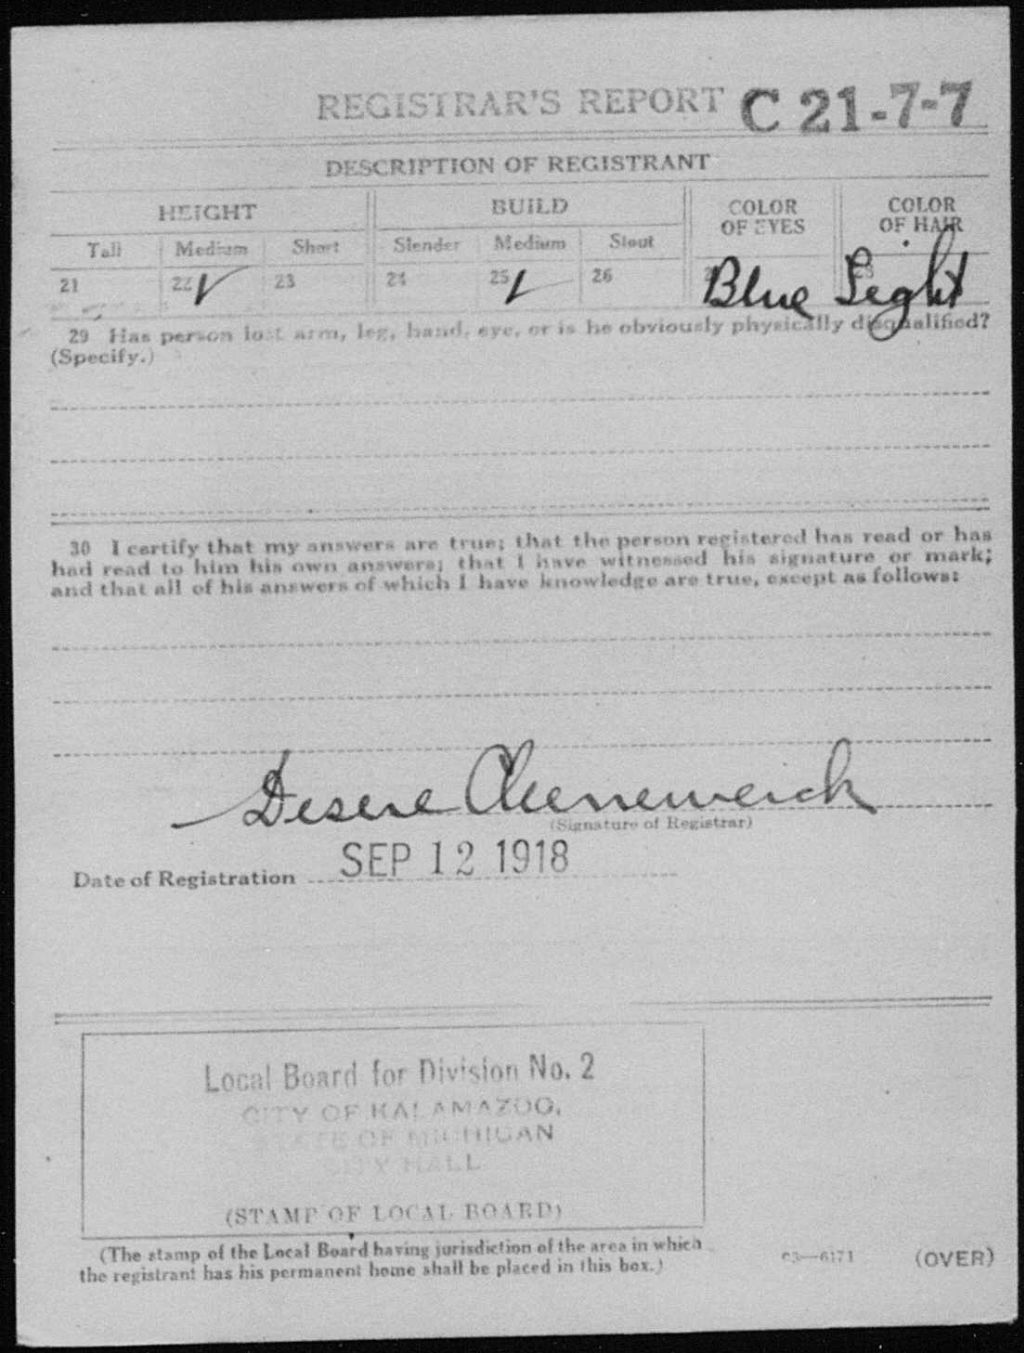 REGISTRAR'S REPORT C 21-7-7
DESCRIPTION OF REGISTRANT
HEIGHT BUILD COLOR OF EYES COLOR OF HAIR
Tall Medium Short Slender Medium Stout
21 22 ✓ 23 24 25 ✓ 26 Blue Light
29 Has person lost arm, leg, hand, eye, or is he obviously physically disqualified?
(Specify.)
30 I certify that my answers are true; that the person registered has read or has
had read to him his own answers; that I have witnessed his signature or mark;
and that all of his answers of which I have knowledge are true, except as follows:
(Signature of Registrar)
Date of Registration SEP 12 1918
Local Board for Division No. 2
CITY OF KALAMAZOO,
STATE OF MICHIGAN
CITY HALL
(STAMP OF LOCAL BOARD)
(The stamp of the Local Board having jurisdiction of the area in which
the registrant has his permanent home shall be placed in this box.)
03—6171 (OVER)